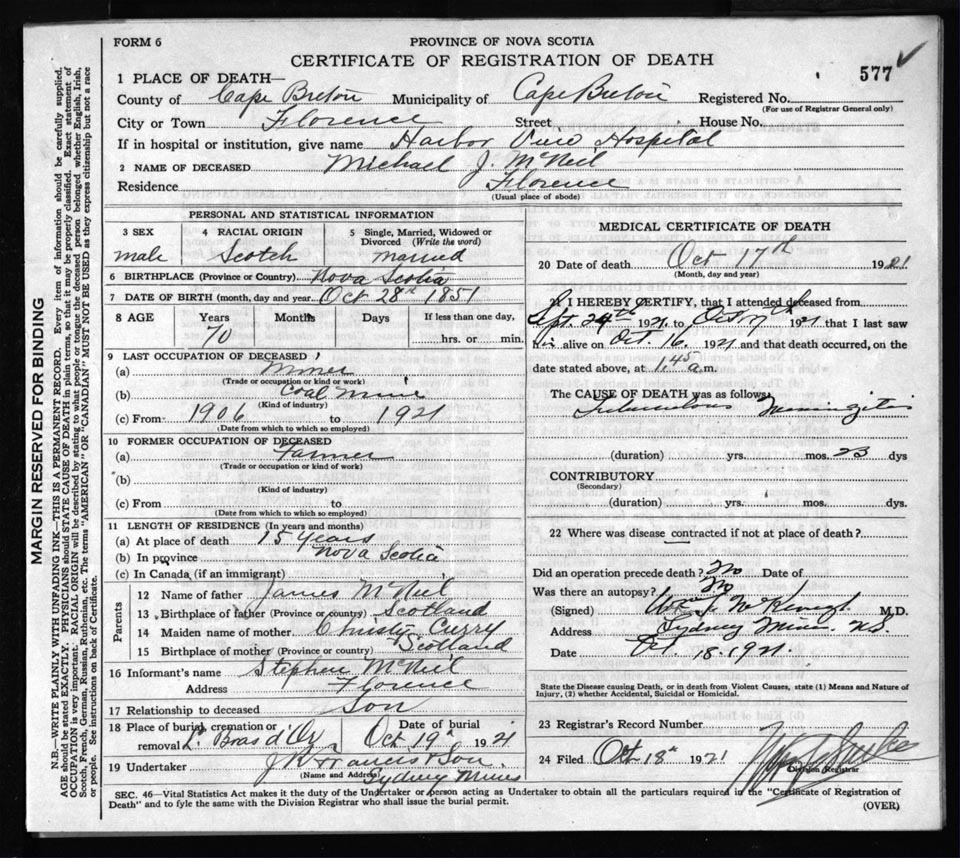 FORM 6
PROVINCE OF NOVA SCOTIA
CERTIFICATE OF REGISTRATION OF DEATH
577
1 PLACE OF DEATH—
County of Cape Breton Municipality of Cape Breton Registered No.
(For use of Registrar General only)
City or Town Florence Street House No.
If in hospital or institution, give name Harbor View Hospital
2 NAME OF DECEASED Michael J. McNeil
Residence Florence
(Usual place of abode)
PERSONAL AND STATISTICAL INFORMATION
3 SEX 4 RACIAL ORIGIN 5 Single, Married, Widowed or Divorced (Write the word)
male Scotch married
6 BIRTHPLACE (Province or Country) Nova Scotia
7 DATE OF BIRTH (month, day and year Oct 28th 1851
8 AGE Years Months Days If less than one day,
70 hrs. or min.
9 LAST OCCUPATION OF DECEASED
(a) Miner
(Trade or occupation or kind or work)
(b) Coal Mine
(Kind of industry)
(c) From 1906 to 1921
(Date from which to which so employed)
10 FORMER OCCUPATION OF DECEASED
(a) Farmer
(Trade or occupation or kind of work)
(b)
(Kind of industry)
(c) From to
(Date from which to which so employed)
11 LENGTH OF RESIDENCE (In years and months)
(a) At place of death 15 years
(b) In province Nova Scotia
(c) In Canada (if an immigrant)
Parents
12 Name of father James McNeil
13 Birthplace of father (Province or country) Scotland
14 Maiden name of mother Christy Curry
15 Birthplace of mother (Province or country) Scotland
16 Informant's name Stephen McNeil
Address Florence
17 Relationship to deceased Son
18 Place of burial, cremation or removal L. Bras d'Or Date of burial Oct 19th 1921
19 Undertaker J R Francis & Son
(Name and Address) Sydney Mines
MEDICAL CERTIFICATE OF DEATH
20 Date of death Oct 17th 1921
(Month, day and year)
21 I HEREBY CERTIFY, that I attended deceased from
Sept. 24th 1921 to Oct 17th 1921 that I last saw
him alive on Oct. 16. 1921 and that death occurred, on the
date stated above, at 1.45 a.m.
The CAUSE OF DEATH was as follows:
Tuberculous Meningitis
(duration) yrs. mos. 23 dys
CONTRIBUTORY
(Secondary)
(duration) yrs. mos. dys.
22 Where was disease contracted if not at place of death?
Did an operation precede death? No Date of
Was there an autopsy? No
(Signed) M.D.
Address Sydney Mines N.S.
Date Oct. 18. 1921.
State the Disease causing Death, or in death from Violent Causes, state (1) Means and Nature of
Injury, (2) whether Accidental, Suicidal or Homicidal.
23 Registrar's Record Number
24 Filed Oct 18th 1921
Division Registrar
SEC. 46—Vital Statistics Act makes it the duty of the Undertaker or person acting as Undertaker to obtain all the particulars required in the "Certificate of Registration of
Death" and to fyle the same with the Division Registrar who shall issue the burial permit.
(OVER)
MARGIN RESERVED FOR BINDING
N.B.—WRITE PLAINLY WITH UNFADING INK—THIS IS A PERMANENT RECORD. Every item of information should be carefully supplied.
AGE should be stated EXACTLY. PHYSICIANS should STATE CAUSE OF DEATH in plain terms, so that it may be properly classified. Exact statement of
OCCUPATION is very important. RACIAL ORIGIN will be described by stating to what people or tongue the deceased person belonged whether English, Irish,
Scotch, French, German, Russian, Ruthenian, etc. The terms "AMERICAN" OR "CANADIAN" MUST NOT BE USED as they express citizenship but not a race
or people. See instructions on back of Certificate.